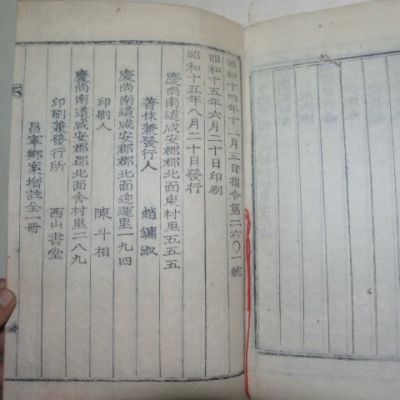 昭和十四年十二月五日指令第二六〇一號
昭和十五年六月二十日印刷
昭和十五年八月二十日發行
慶尙南道咸安郡郡北面東村里五五五
著作兼發行人 趙鏞淑
慶尙南道咸安郡郡北面迎運里一九四
印刷人 陳斗相
慶尙南道咸安郡郡北面舍村里二八九
印刷兼發行所 西山書堂
呂家鄕案增註全一冊